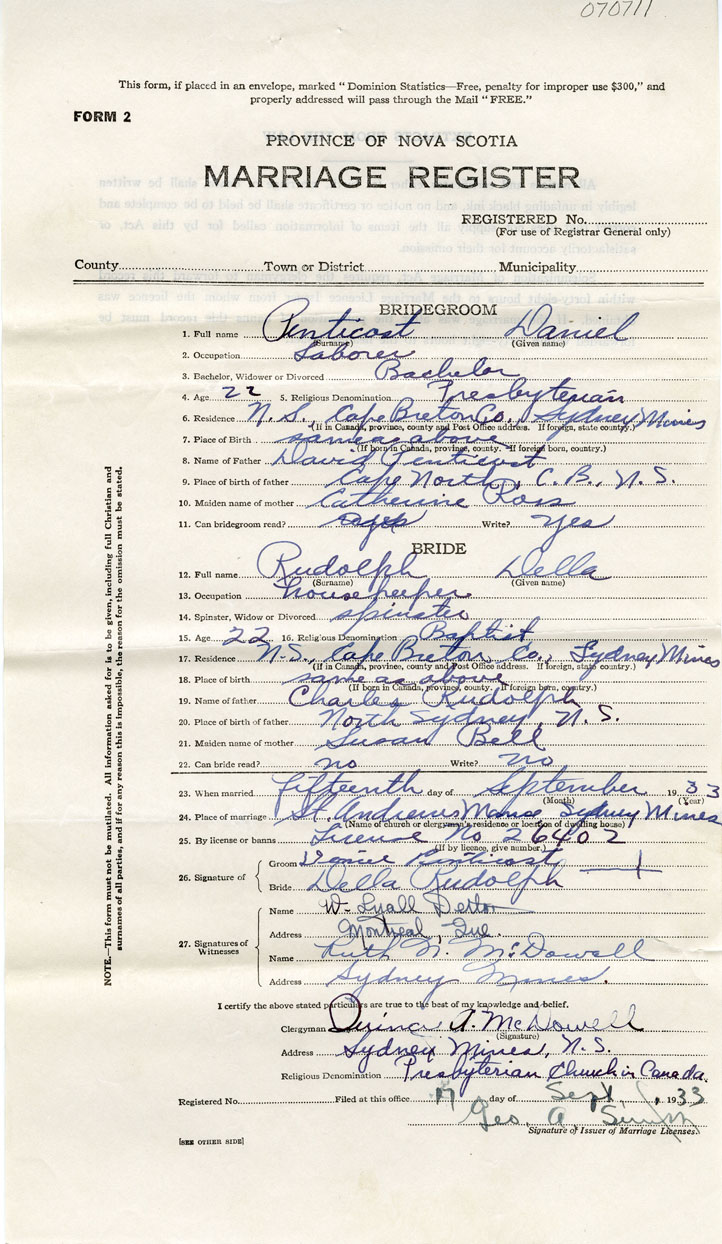 070711
This form, if placed in an envelope, marked “ Dominion Statistics—Free, penalty for improper use $300,” and
properly addressed will pass through the Mail “ FREE.”
FORM 2
PROVINCE OF NOVA SCOTIA
MARRIAGE REGISTER
REGISTERED No.
(For use of Registrar General only)
County Town or District Municipality
BRIDEGROOM
1. Full name Penticost Daniel
(Surname) (Given name)
2. Occupation Laborer
3. Bachelor, Widower or Divorced Bachelor
4. Age 22 5. Religious Denomination Presbyterian
6. Residence N. S., Cape Breton Co., Sydney Mines
(If in Canada, province, county and Post Office address. If foreign, state country.)
7. Place of Birth same as above
(If born in Canada, province, county. If foreign born, country.)
8. Name of Father David Penticost
9. Place of birth of father Cape North, C. B., N. S.
10. Maiden name of mother Catherine Ross
11. Can bridegroom read? Write? yes
BRIDE
12. Full name Rudolph Della
(Surname) (Given name)
13. Occupation housekeeper
14. Spinster, Widow or Divorced spinster
15. Age 22 16. Religious Denomination Baptist
17. Residence N. S., Cape Breton Co., Sydney Mines
(If in Canada, province, county and Post Office address. If foreign, state country.)
18. Place of birth same as above
(If born in Canada, province, county. If foreign born, country.)
19. Name of father Charles Rudolph
20. Place of birth of father North Sydney, N. S.
21. Maiden name of mother Susan Bell
22. Can bride read? no Write? no
23. When married fifteenth day of September 1933
(Month) (Year)
24. Place of marriage St. Andrews Manse, Sydney Mines
(Name of church or clergyman's residence or location of dwelling house)
25. By license or banns License No 26402
(If by licence, give number.)
26. Signature of
Groom Penticost
Bride Della Rudolph
27. Signatures of Witnesses
Name W. Lyall
Address Montreal, Que.
Name Ruth N. McDowell
Address Sydney Mines.
I certify the above stated particulars are true to the best of my knowledge and belief.
Clergyman A. McDowell
(Signature)
Address Sydney Mines, N. S.
Religious Denomination Presbyterian Church in Canada.
Registered No. Filed at this office 17 day of Sept, 1933
Geo. A.
Signature of Issuer of Marriage Licenses.
[SEE OTHER SIDE]
NOTE.—This form must not be mutilated. All information asked for is to be given, including full Christian and
surnames of all parties, and if for any reason this is impossible, the reason for the omission must be stated.